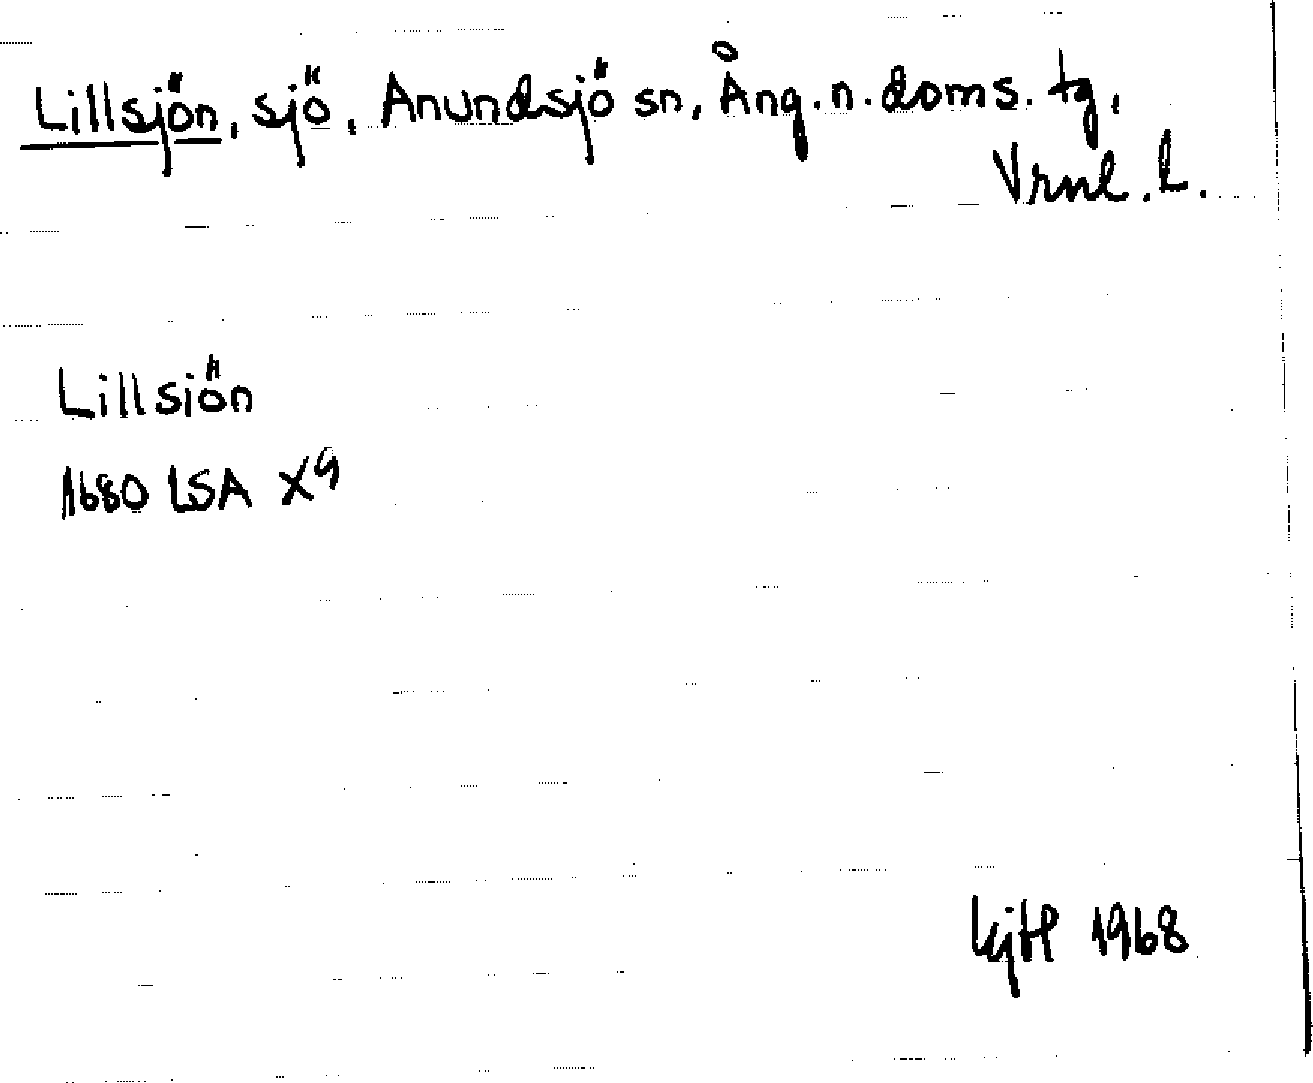 Lillsjön, sjö, Anundsjö sn, Ång. n. doms. tg,
Vrnl. l.
Lillsiön
1680 LSA X9
1968